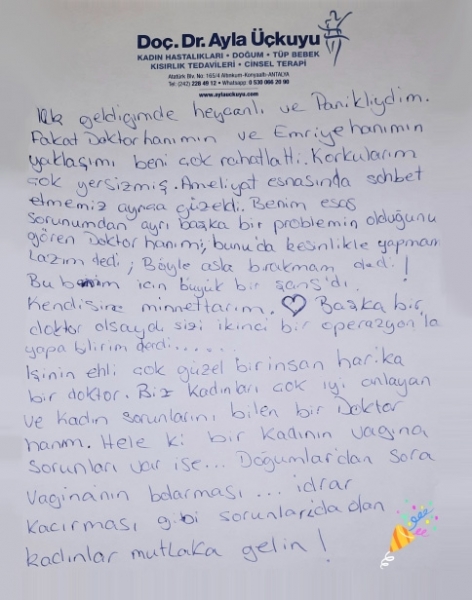 Doç. Dr. Ayla Üçkuyu
KADIN HASTALIKLARI • DOĞUM • TÜP BEBEK
KISIRLIK TEDAVİLERİ • CİNSEL TERAPİ
Atatürk Blv. No: 165/4 Altınkum-Konyaaltı-ANTALYA
Tel: (242) 228 49 12 • Whatsapp: 0 538 066 20 90
www.aylauckuyu.com
İlk geldiğimde heycanlı ve Panikliydim.
Fakat Doktor hanımın ve Emriye hanımın
yaklaşımı beni çok rahatlattı. Korkularım
çok yersizmiş. Ameliyat esnasında sohbet
etmemiz ayrıca güzeldi. Benim esas
sorunumdan ayrı başka bir problemin olduğunu
gören Doktor hanımı, bunu'da kesinlikle yapmam
Lazım dedi, Böyle asla bırakmam dedi!
Bu benim için büyük bir şans'dı.
Kendisine minnettarım. ♡ Başka bir
doktor olsaydı sizi ikinci bir operazyon'la
yapa bilirim derdi......
İşinin ehli çok güzel bir insan harika
bir doktor. Biz kadınları çok iyi anlayan
ve kadın sorunlarını bilen bir Doktor
hanım. Hele ki bir kadının vagina
sorunları var ise... Doğumlardan sora
Vaginanın bolarması ... idrar
kaçırması gibi sorunlarıda olan
kadınlar mutlaka gelin!